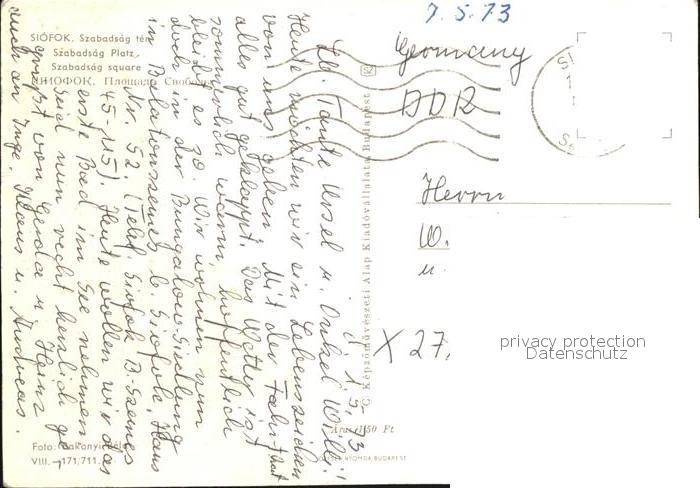 7.5.73
SIÓFOK, Szabadság tér
Szabadság Platz
Szabadság square
ШИОФОК, Площадь Свободы
Germany
DDR
Herrn
W.
u.
X 27,
privacy protection
Datenschutz
Lb. Tante Ursel u. Onkel Willi!
Heute möchten wir ein Lebenszeichen
von uns geben. Mit der Fahrt hat
alles gut geklappt. Das Wetter ist
sommerlich warm, hoffentlich
bleibt es so. Wir wohnen nun
doch in der Bungalow-Siedlung
in Balatonszemes b. Siofok, Haus
Nr. 52 (Telef. Siofok B-Szemes
45-115). Heute wollen wir das
erste Bad im See nehmen.
Seid nun recht herzlich ge-
grüßt von Gerda u. Heinz
auch an Inge, Klaus u. Andreas.
C Képzőművészeti Alap Kiadóvállalata, Budapest
Ára: 1,50 Ft
Foto: Bakonyi Béla
VIII.-171/711.
OFFSET-NYOMDA, BUDAPEST